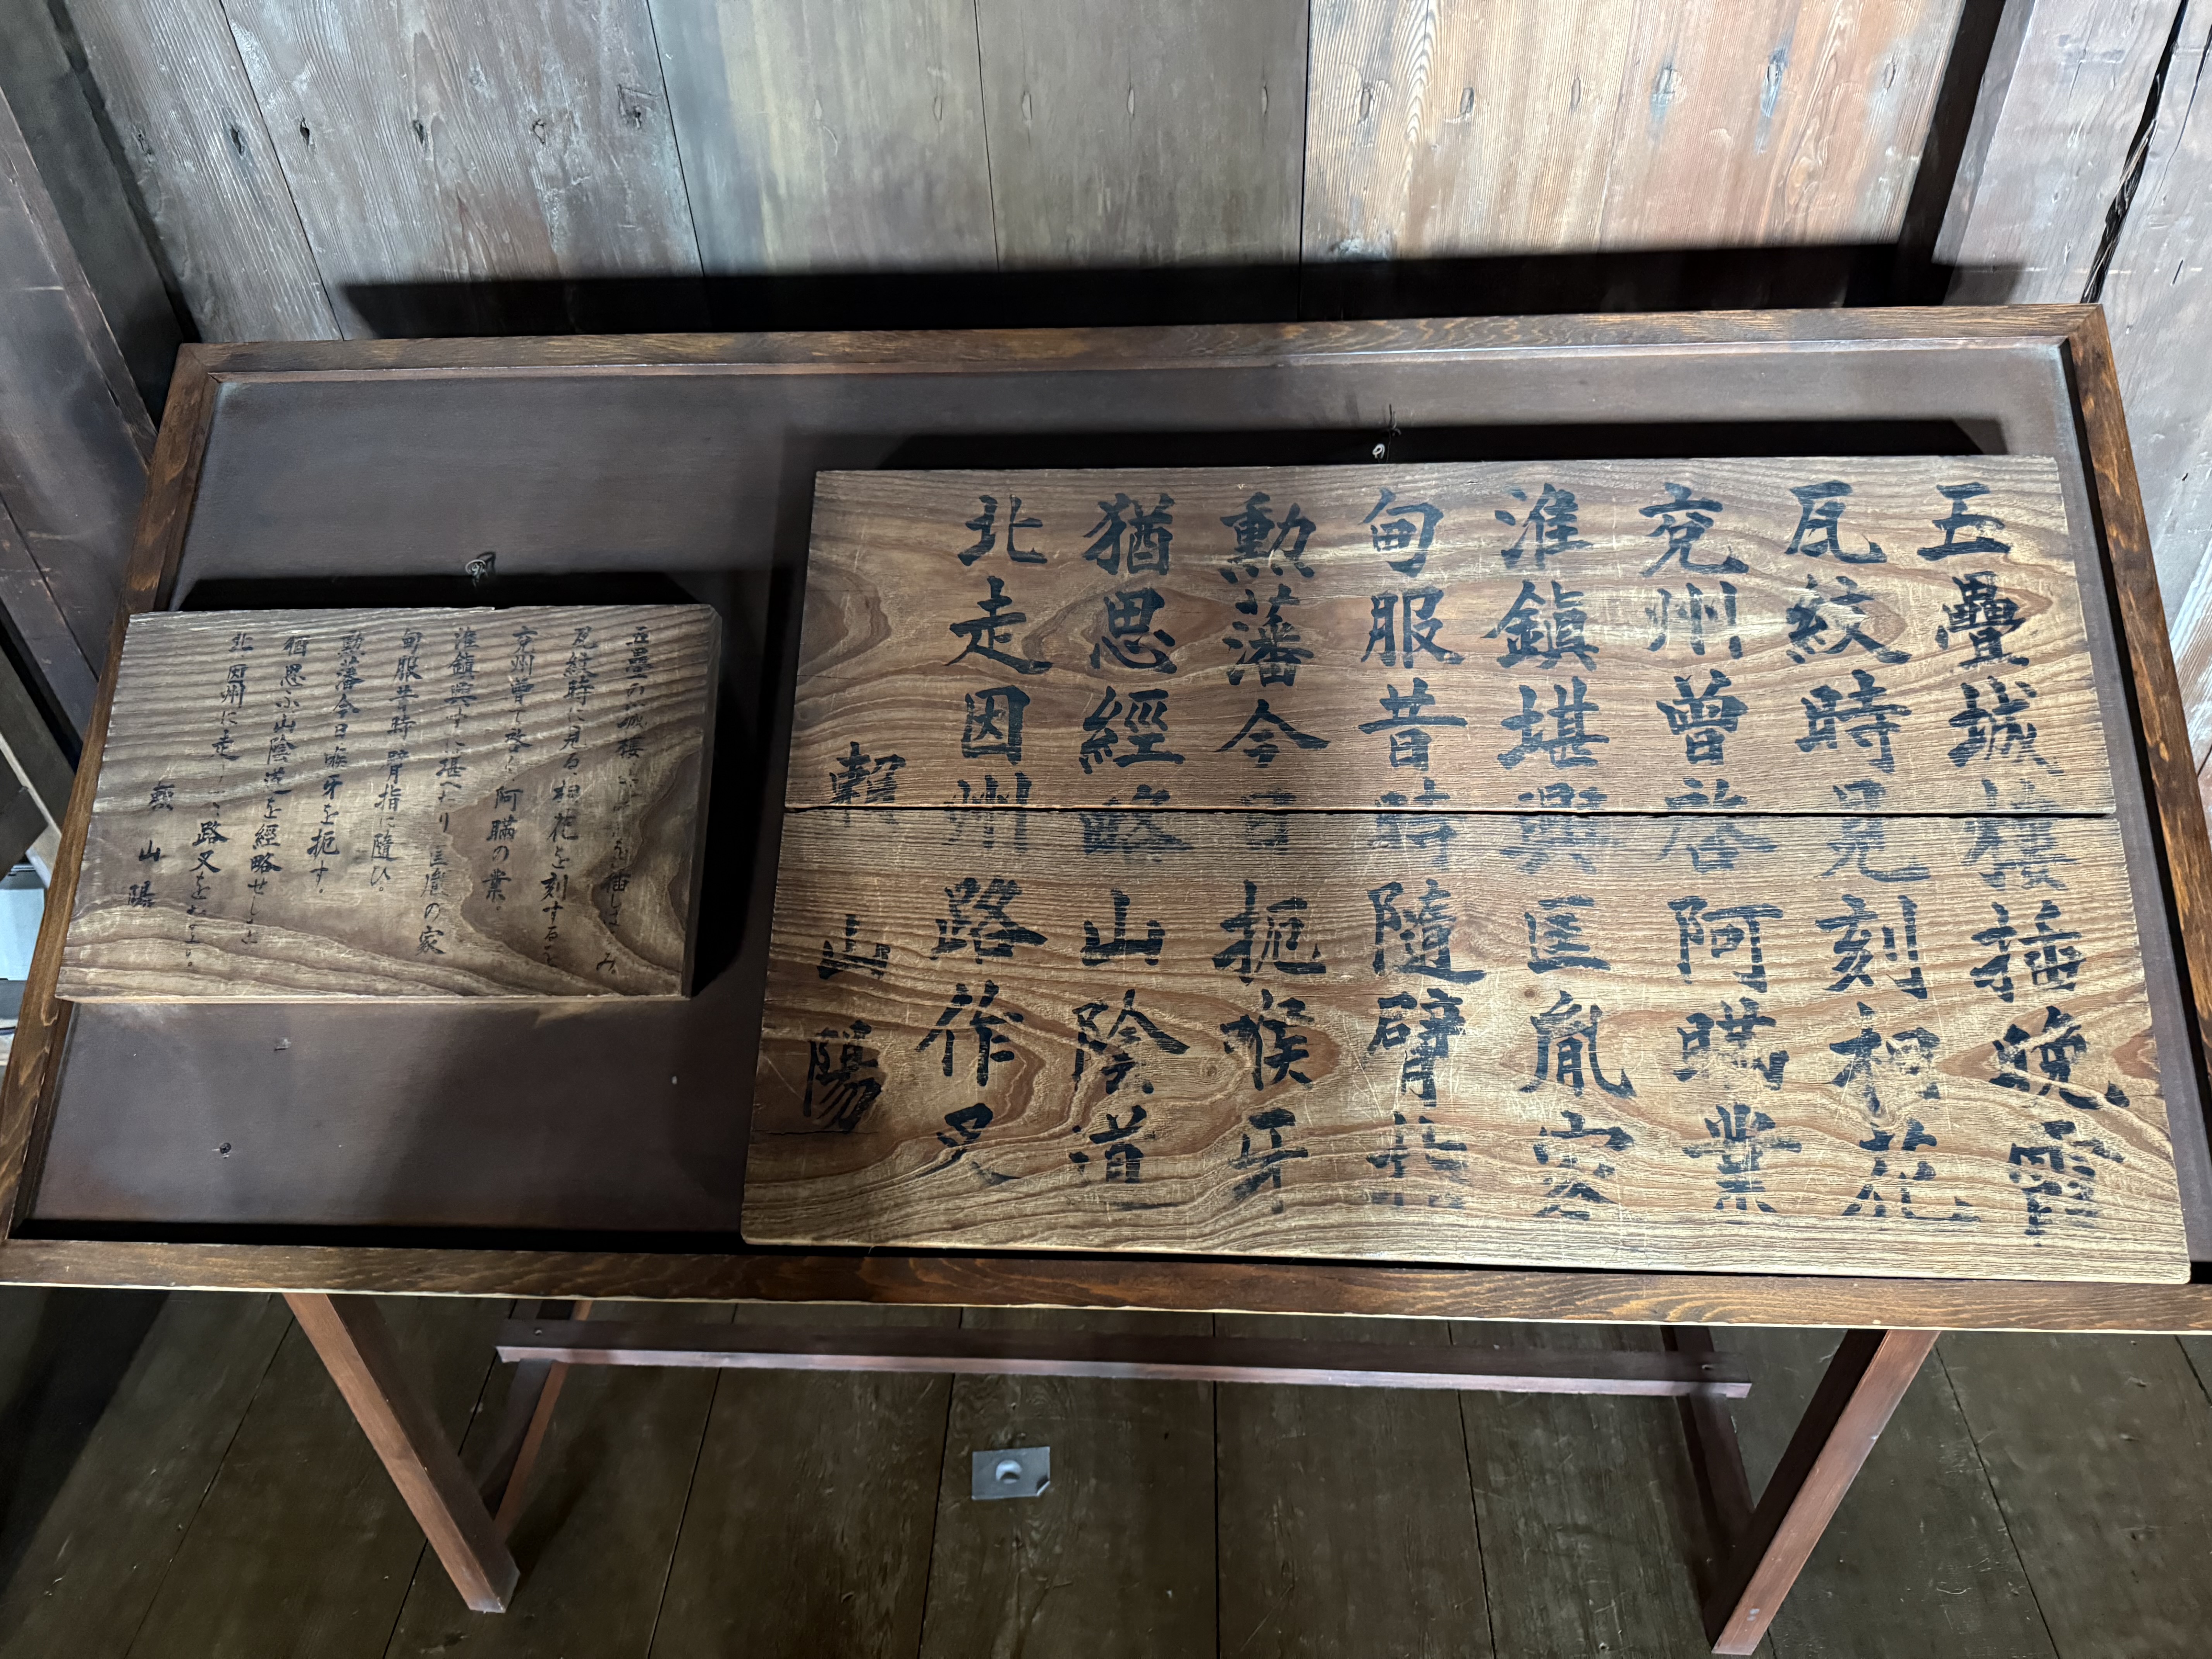 五疊城樓挿晩霞
瓦紋時見刻桐花
兗州曾啓阿瞞業
淮鎮堪興匡胤家
甸服昔時隨臂指
勳藩今日扼喉牙
猶思經略山陰道
北走因州路作叉
賴山陽
五疊の城樓
瓦紋時に見る、桐花を刻すること
兗州曾て啓く、阿瞞の業。
淮鎮興すに堪へたり匡胤の家
甸服昔時臂指に隨ひ。
勳藩今日喉牙を扼す。
猶思ふ山陰道を經略せしこと
北因州に走 路叉を
賴山陽